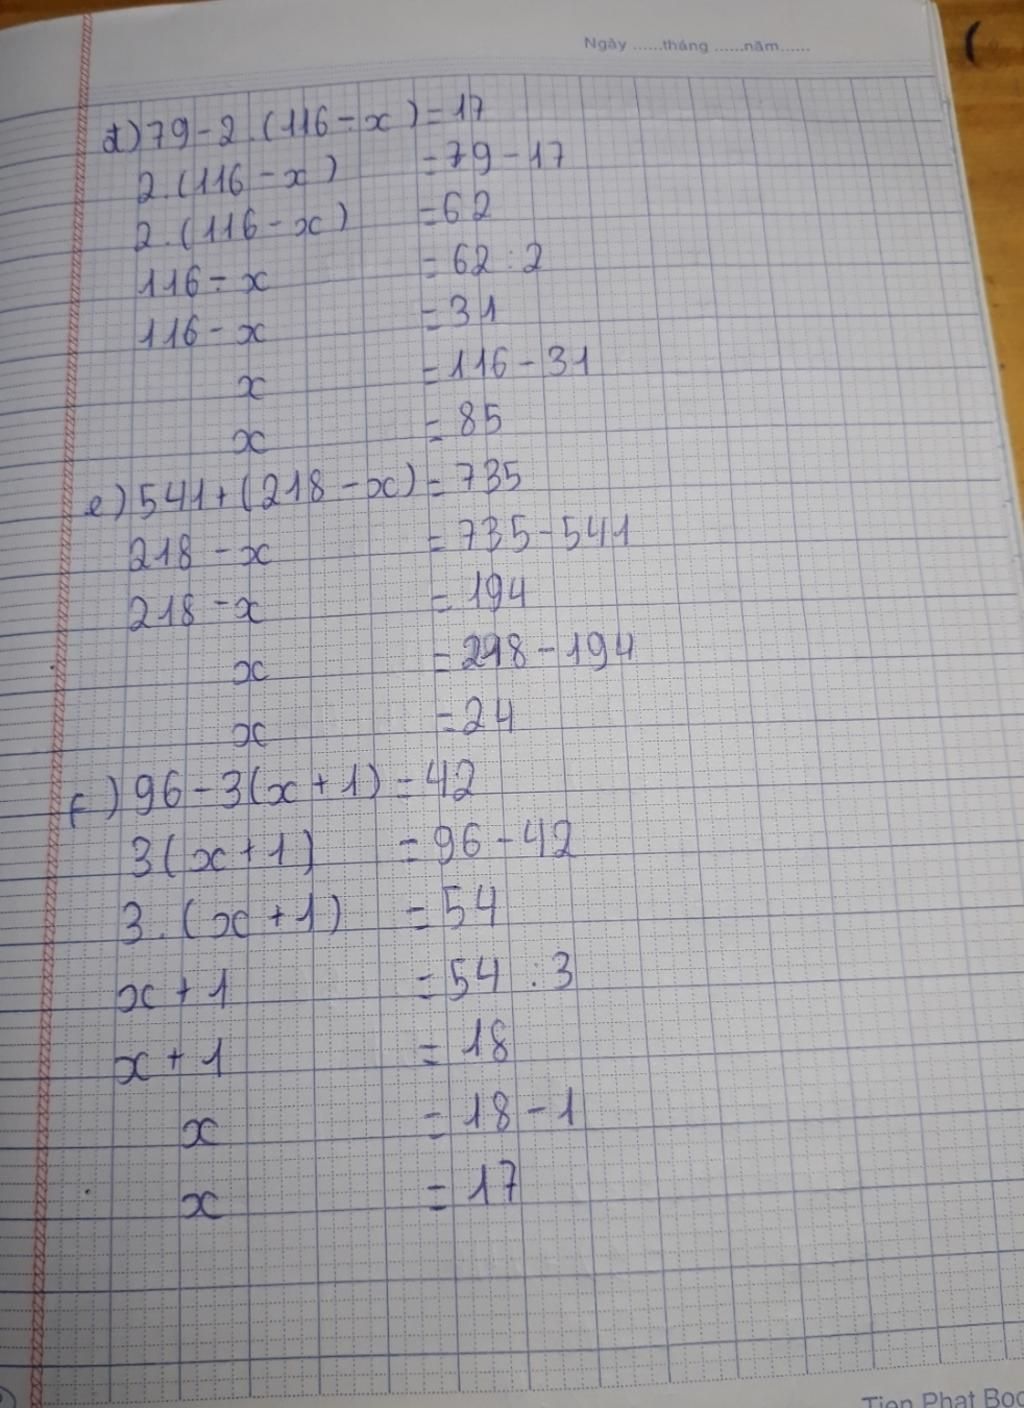 Ngày ......tháng ......năm......
d) 79 - 2.(116 - x) = 17
2.(116 - x) = 79 - 17
2.(116 - x) = 62
116 - x = 62 : 2
116 - x = 31
x = 116 - 31
x = 85
e) 541 + (218 - x) = 735
218 - x = 735 - 541
218 - x = 194
x = 218 - 194
x = 24
f) 96 - 3(x + 1) = 42
3(x + 1) = 96 - 42
3.(x + 1) = 54
x + 1 = 54 : 3
x + 1 = 18
x = 18 - 1
x = 17
Tien Phat